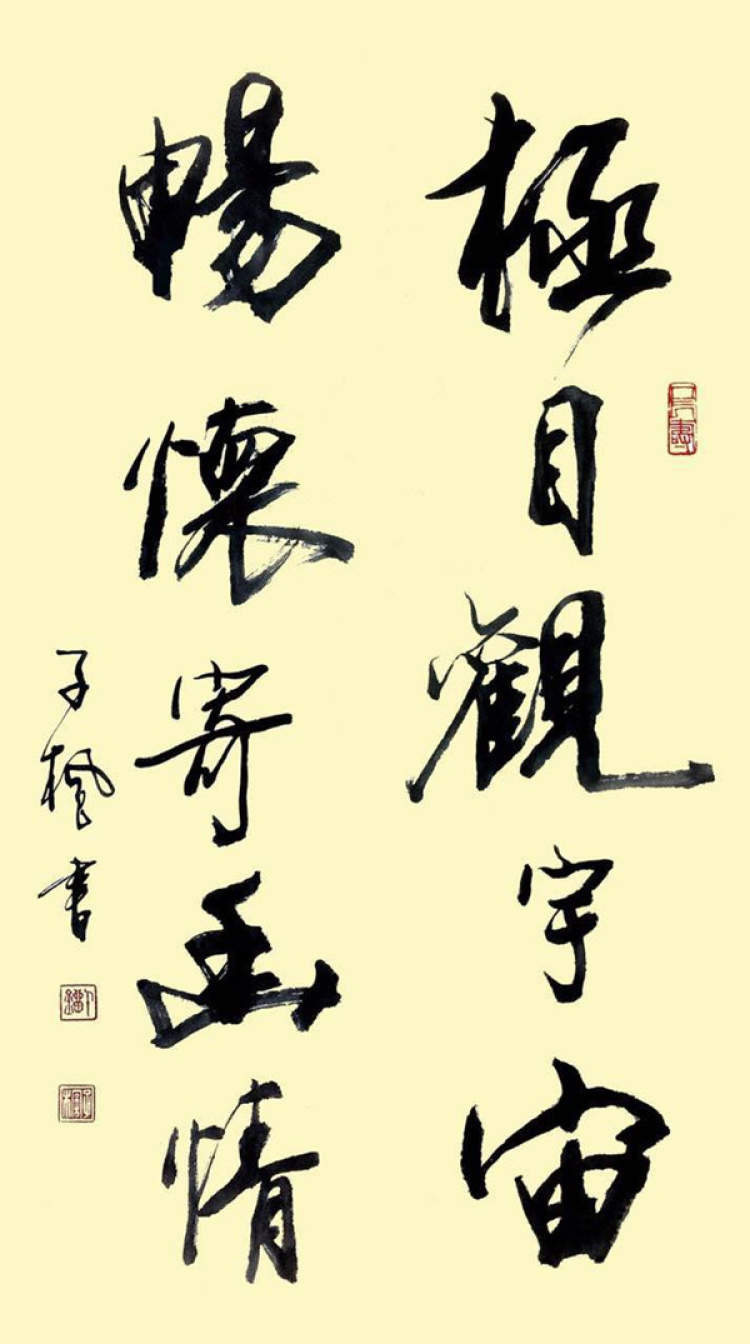 極目觀宇宙
暢懷寄幽情
子楓書